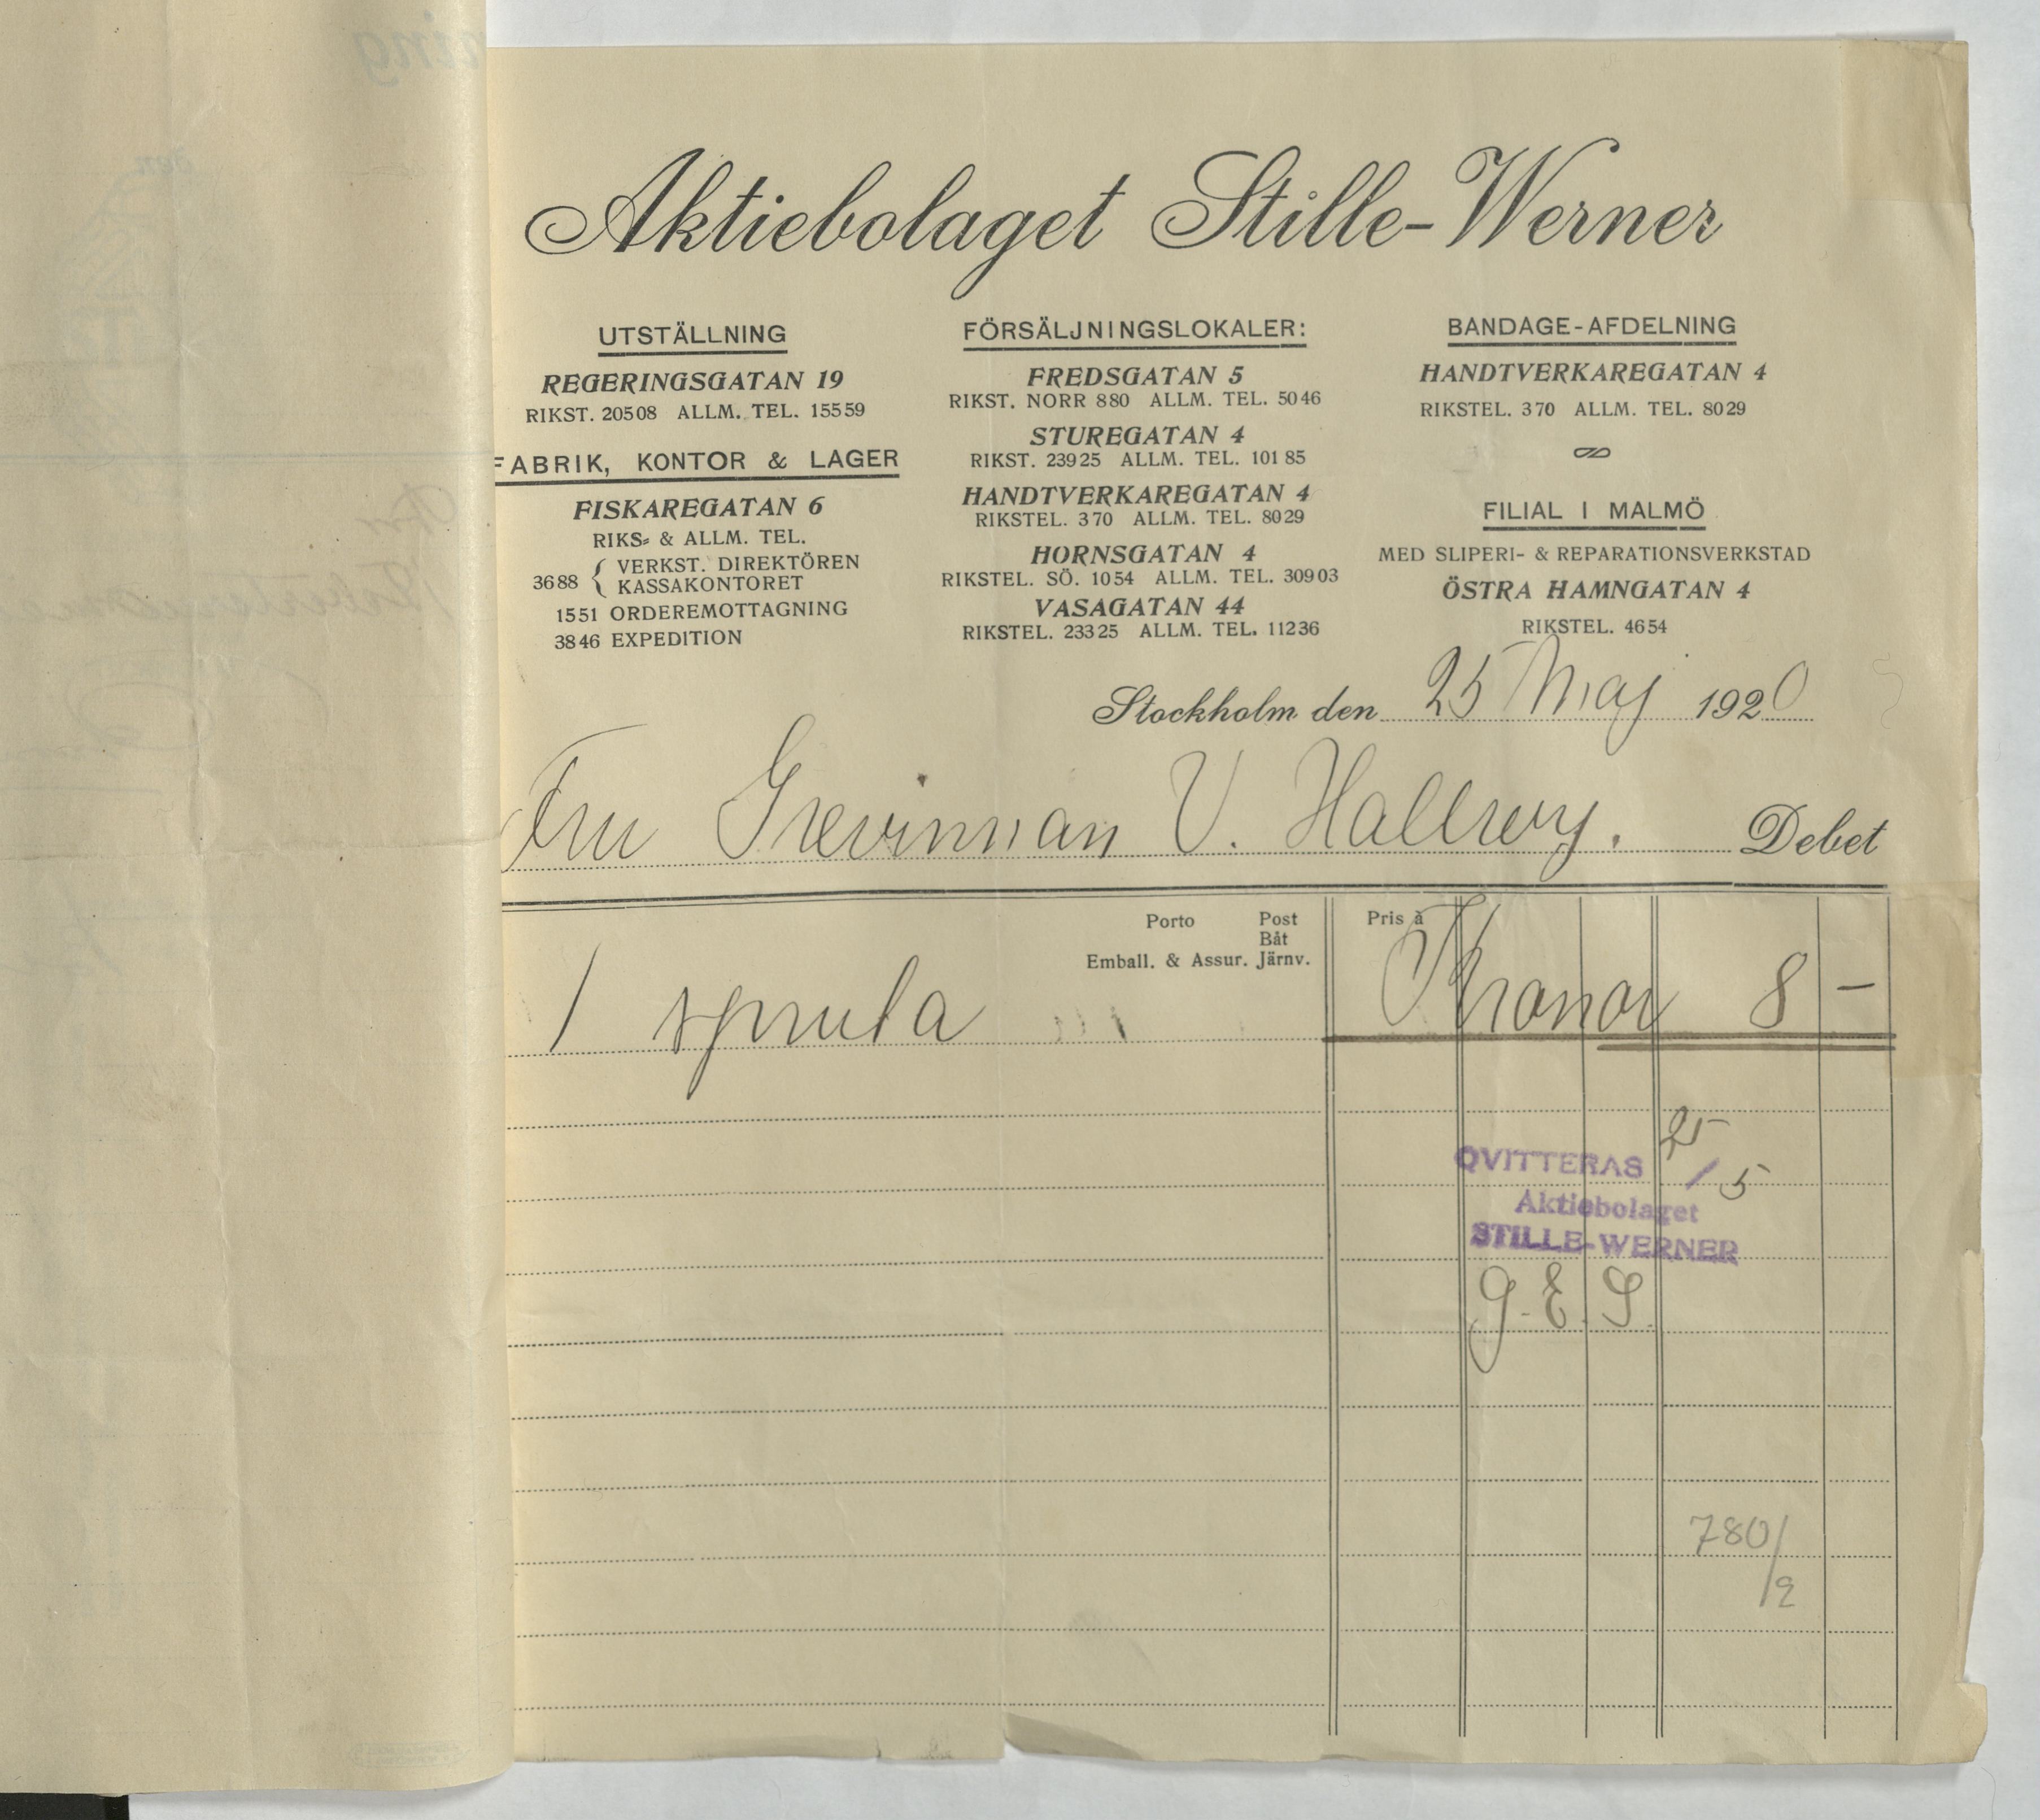 Aktiebolaget Stille-Werner
UTSTÄLLNING
REGERINGSGATAN 19
RIKST. 20508 ALLM. TEL. 15559
FABRIK, KONTOR & LAGER
FISKAREGATAN 6
RIKS- & ALLM. TEL.
3688 { VERKST. DIREKTÖREN
KASSAKONTORET
1551 ORDEREMOTTAGNING
3846 EXPEDITION
FÖRSÄLJNINGSLOKALER:
FREDSGATAN 5
RIKST. NORR 880 ALLM. TEL. 5046
STUREGATAN 4
RIKST. 23925 ALLM. TEL. 10185
HANDTVERKAREGATAN 4
RIKSTEL. 370 ALLM. TEL. 8029
HORNSGATAN 4
RIKSTEL. SÖ. 1054 ALLM. TEL. 30903
VASAGATAN 44
RIKSTEL. 23325 ALLM. TEL. 11236
BANDAGE-AFDELNING
HANDTVERKAREGATAN 4
RIKSTEL. 370 ALLM. TEL. 8029
FILIAL I MALMÖ
MED SLIPERI- & REPARATIONSVERKSTAD
ÖSTRA HAMNGATAN 4
RIKSTEL. 4654
Stockholm den 25 Maj 1920
Fru Grevinnan V. Hallwy. Debet
Porto Post
Båt
Emball. & Assur. Järnv.
Pris à
1 spruta Kronor 8 -
QVITTERAS 25/5
Aktiebolaget
STILLE-WERNER
G. E. S.
780/2